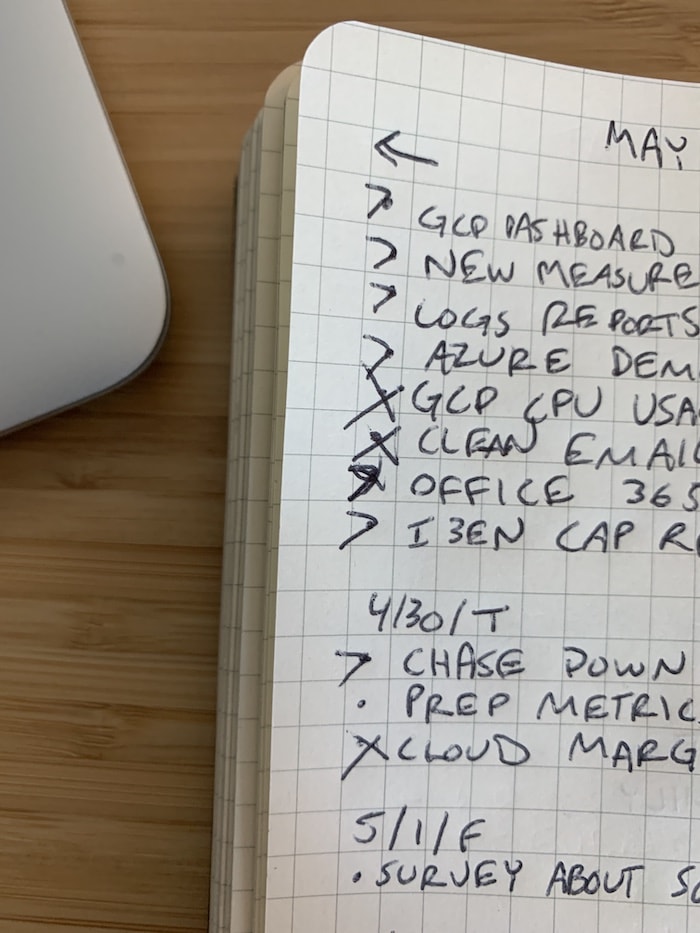 ← MAY
> GCP DASHBOARD
> NEW MEASURE
> LOGS REPORTS
> AZURE DEM
X GCP CPU USA
X CLEAN EMAIL
X OFFICE 365
> I3EN CAP R
4/30/T
> CHASE DOWN
· PREP METRIC
X CLOUD MARG
5/1/F
· SURVEY ABOUT